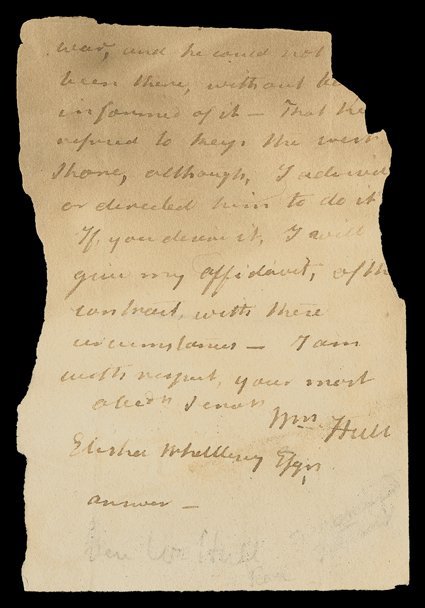 war, and he could not
been there, without be
informed of it — That he
refused to keep the
shore, although, I advised
or directed him to do it
If, you desire it, I will
give my affidavit, of th
contract, with these
circumstances — I am
with respect, your most
obedt Servt
Wm Hull
Elisha Whittlesey Esqr
answer —
Gen Wm Hull